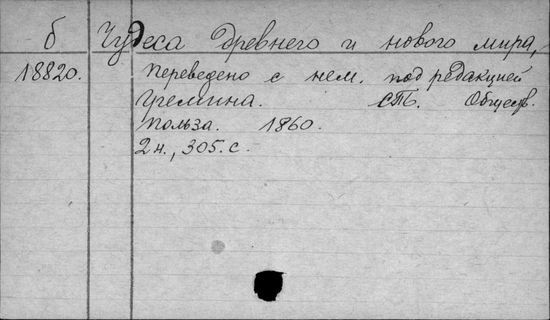 б Чудеса древнего и нового мира,
18820. Переведено с нем. под редакцией
Гремина. СПб. Обществ.
Польза. 1860.
2 н., 305. с.